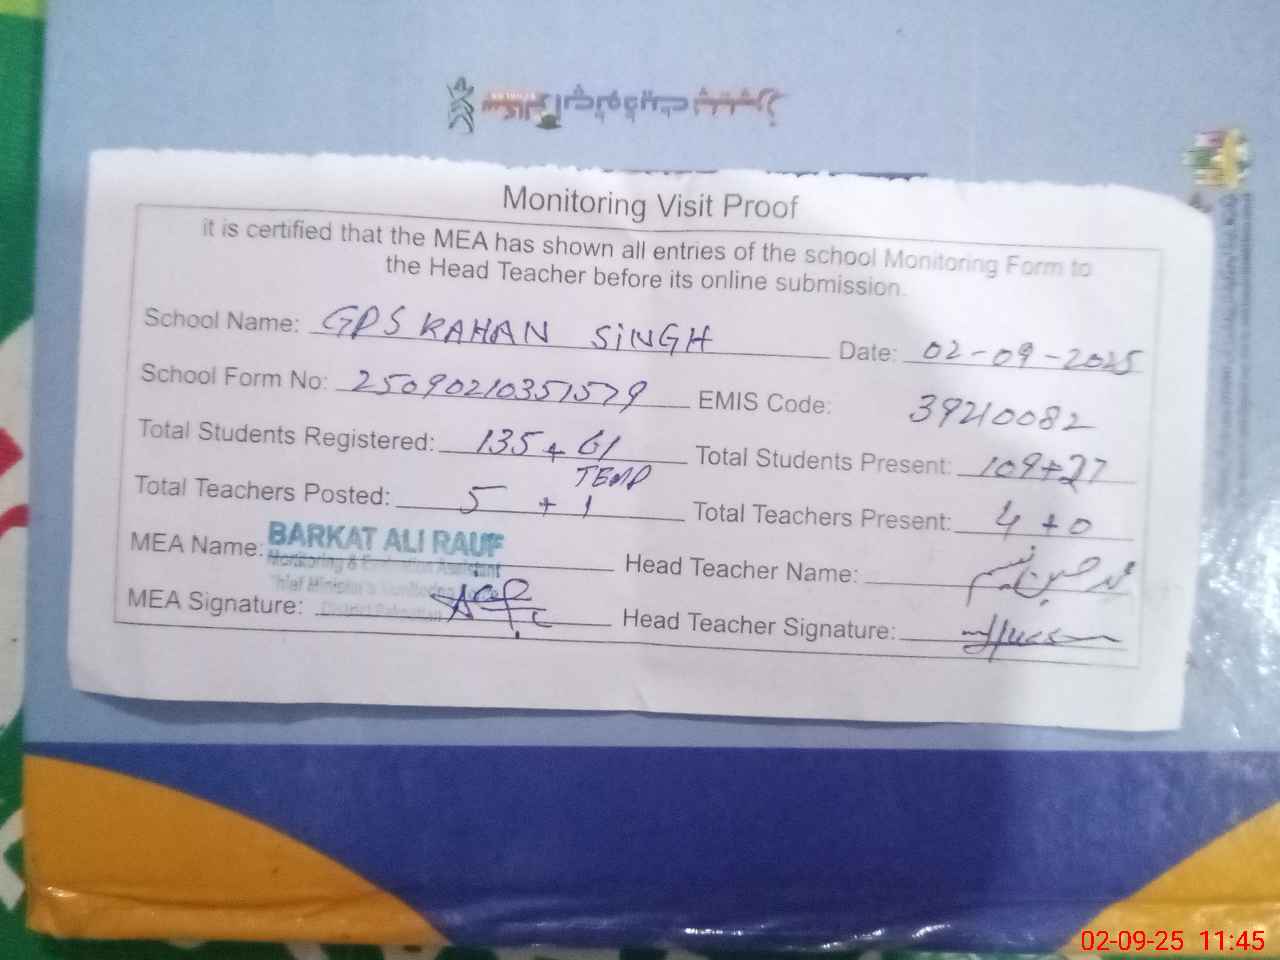 Monitoring Visit Proof
it is certified that the MEA has shown all entries of the school Monitoring Form to
the Head Teacher before its online submission.
School Name: GPS KAHAN SINGH Date: 02-09-2025
School Form No: 25090210351579 EMIS Code: 39210082
Total Students Registered: 135 + 61 Total Students Present: 109+27
TEMP
Total Teachers Posted: 5 + 1 Total Teachers Present: 4 + 0
MEA Name: BARKAT ALI RAUF Head Teacher Name:
Monitoring & Evaluation Assistant
Chief Minister's Monitoring
District
MEA Signature: Head Teacher Signature:
02-09-25 11:45